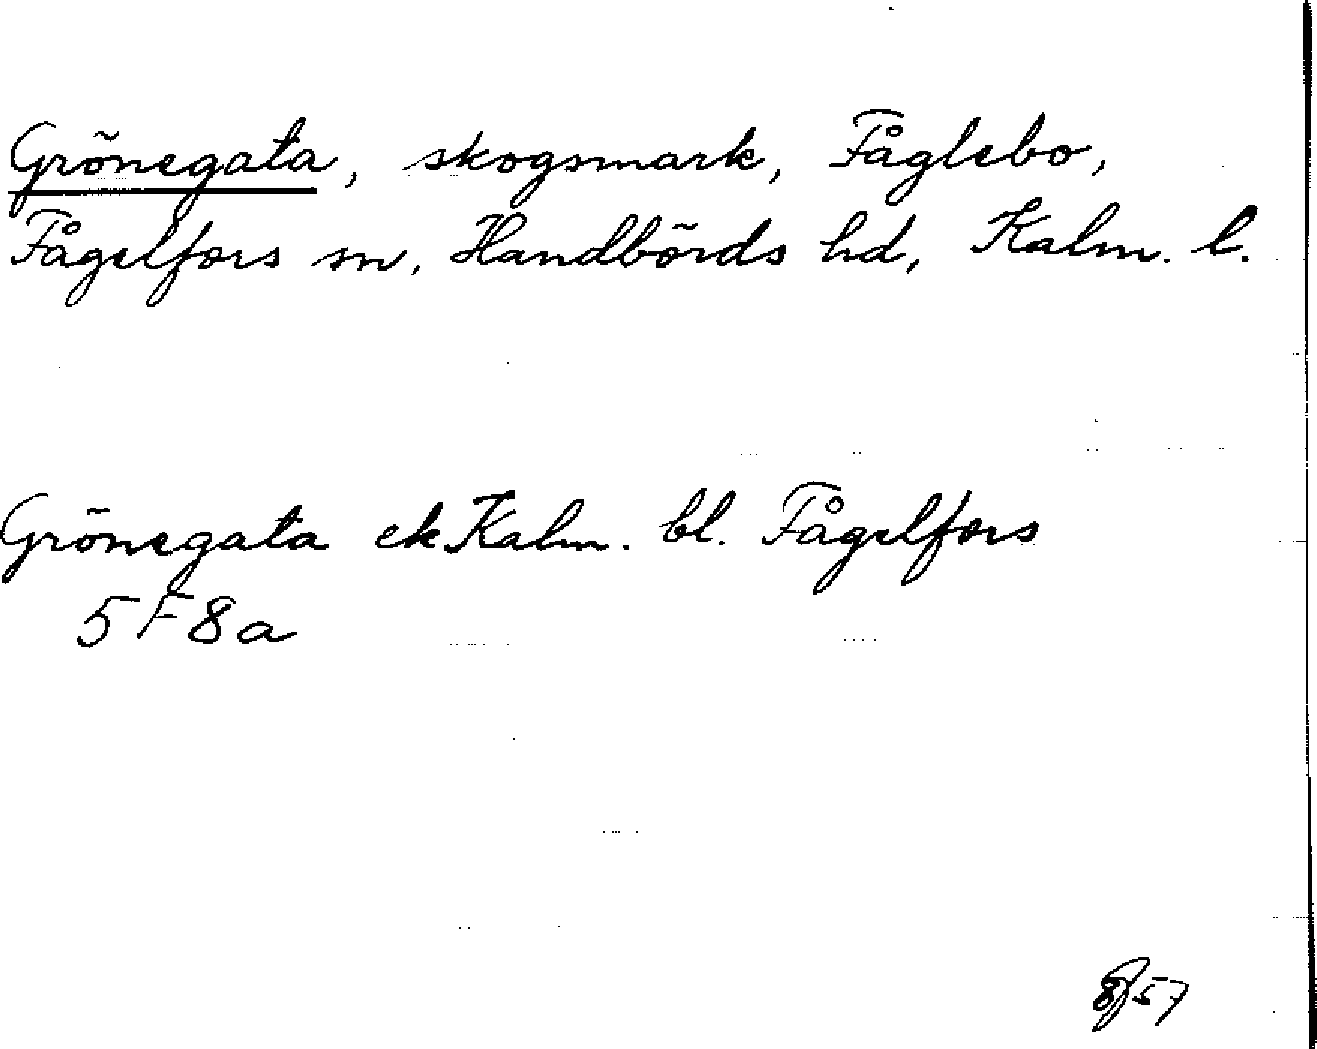 Grönegata, skogsmark, Fåglebo,
Fågelfors sn, Handbörds hd, Kalm. l.
Grönegata ek Kalm. bl. Fågelfors
5F8a